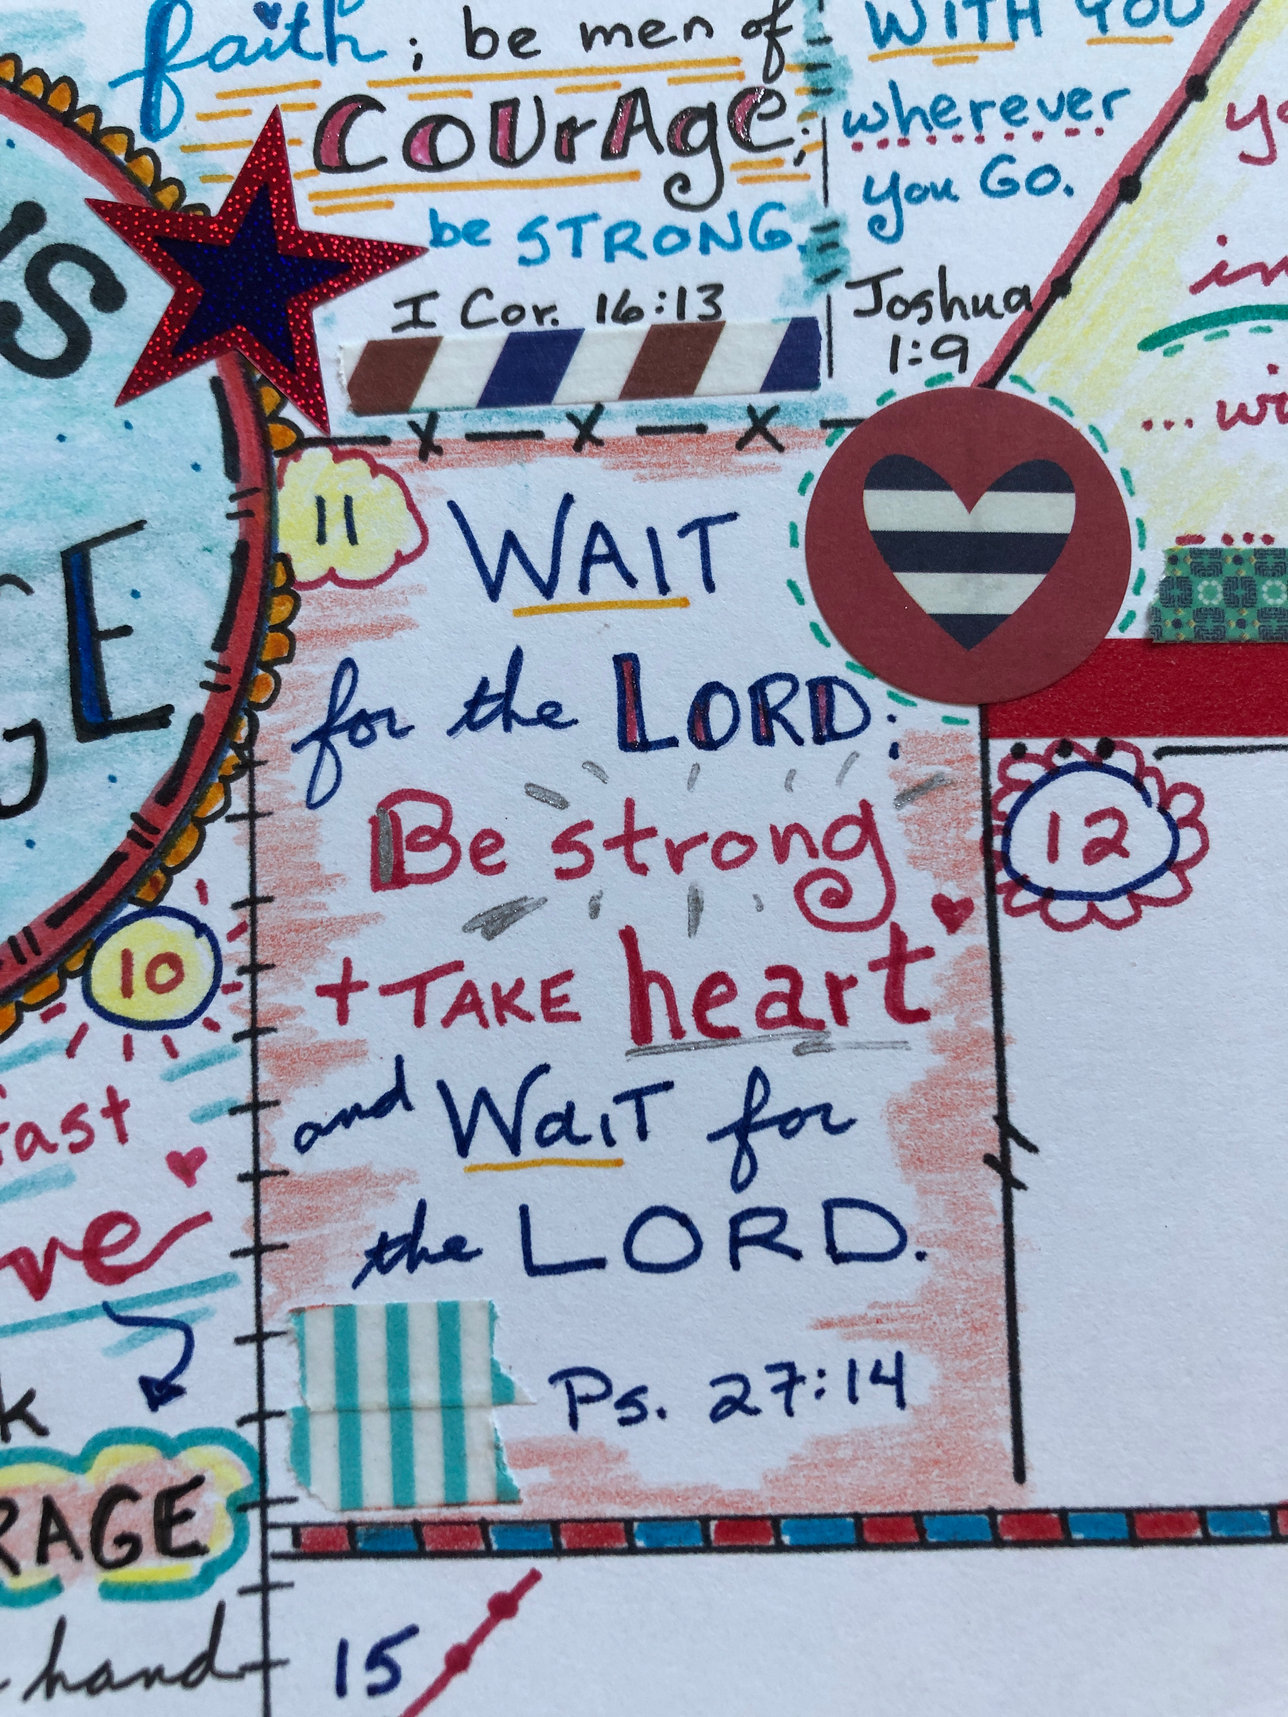 faith; be men of
COUrAge;
be STRONG.
I Cor. 16:13
WITH YOU
wherever
you GO.
Joshua
1:9
11
WAIT
for the LORD;
Be strong
+ TAKE heart
and WaiT for
the LORD.
Ps. 27:14
12
10
15
hand